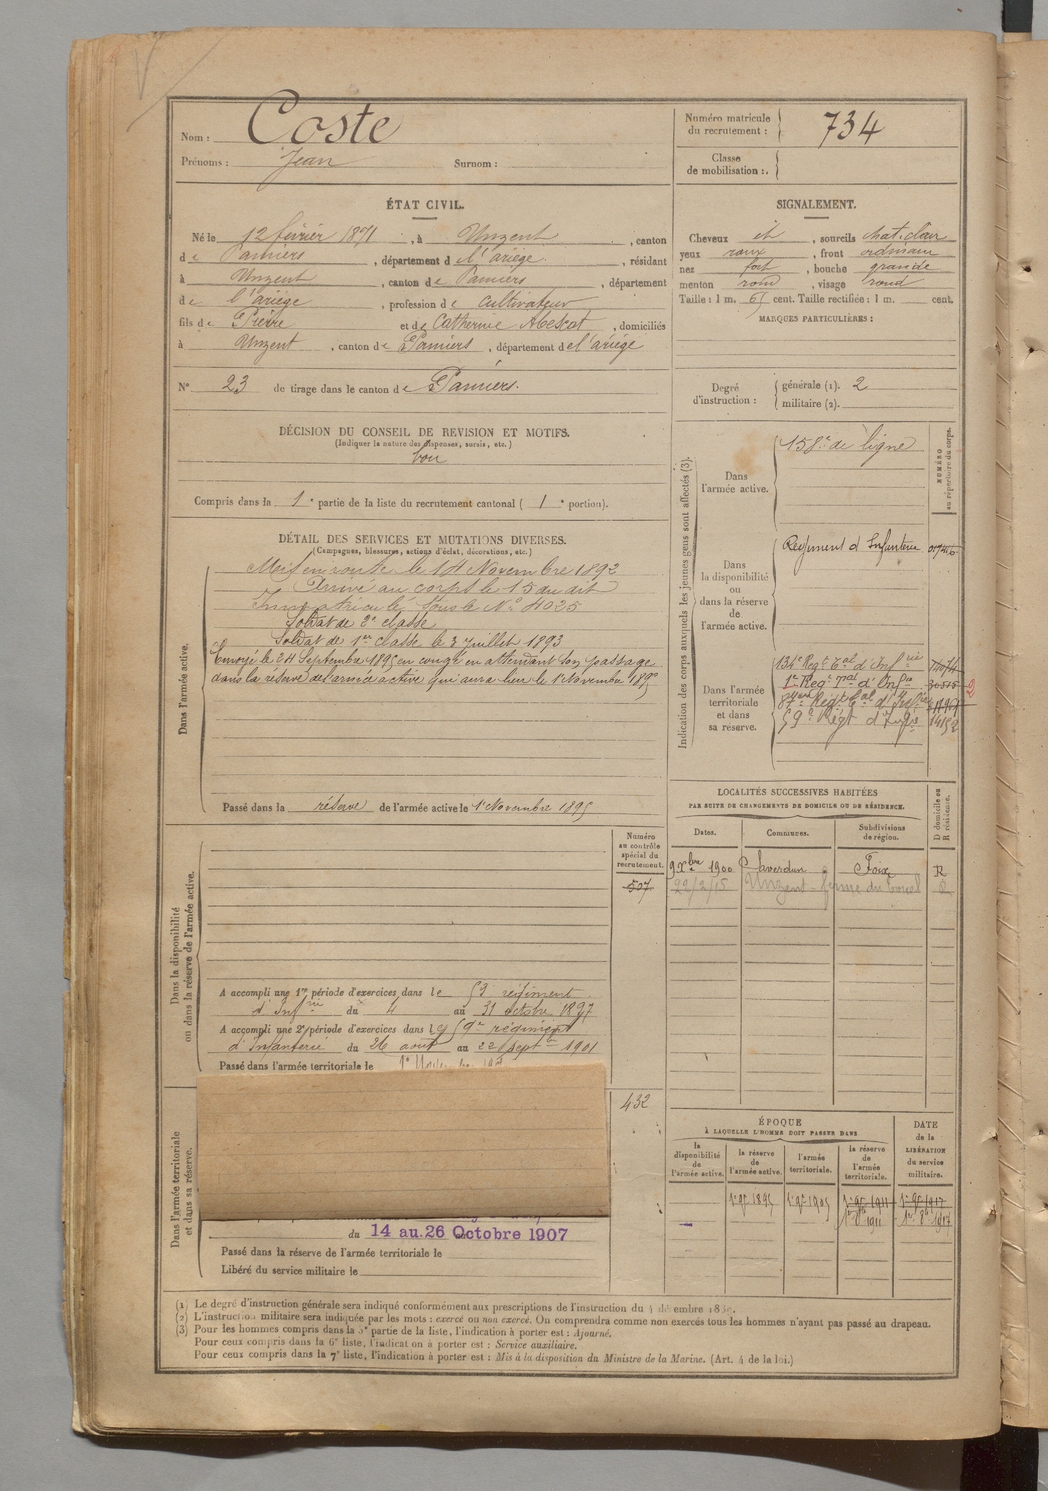 Nom : Coste
Prénoms : Jean Surnom :
Numéro matricule du recrutement : 734
Classe de mobilisation :
ÉTAT CIVIL.
Né le 12 février 1871, à Unzent, canton
de Pamiers, département d l'ariège, résidant
à Unzent, canton de Pamiers, département
de l'ariège, profession de cultivateur
fils de Pierre et de Catherine Abescat, domiciliés
à Unzent, canton de Pamiers, département de l'ariège
N° 23 de tirage dans le canton de Pamiers.
SIGNALEMENT.
Cheveux et, sourcils chat. clair
yeux roux, front ordinaire
nez fort, bouche grande
menton rond, visage rond
Taille : 1 m. 65 cent. Taille rectifiée : 1 m. cent.
MARQUES PARTICULIÈRES :
Degré d'instruction : générale (1). 2
militaire (2).
DÉCISION DU CONSEIL DE REVISION ET MOTIFS.
(Indiquer la nature des dispenses, sursis, etc.)
bon
Compris dans la 1e partie de la liste du recrutement cantonal ( 1e portion).
DÉTAIL DES SERVICES ET MUTATIONS DIVERSES.
(Campagnes, blessures, actions d'éclat, décorations, etc.)
Dans l'armée active.
Mis en route le 14 Novembre 1892
Arrivé au corps le 15 du dit
Immatriculé sous le N° 4025
Soldat de 2e classe
Soldat de 1er classe le 3 Juillet 1893
Envoyé le 24 Septembre 1895 en congé en attendant son passage
dans la réserve de l'armée active qui aura lieu le 1 Novembre 1895
Passé dans la réserve de l'armée active le 1 Novembre 1895
Indication des corps auxquels les jeunes gens sont affectés (3).
NUMÉRO au répertoire du corps.
Dans l'armée active.
158e de ligne
Dans la disponibilité ou dans la réserve de l'armée active.
Régiment d'Infanterie
Dans l'armée territoriale et dans sa réserve.
134e Regt tal d'Infrie
1er Regt tal d'Infrie
87eme Regt tal d'Infrie
59e Régt d'Infrie 14152
LOCALITÉS SUCCESSIVES HABITÉES
PAR SUITE DE CHANGEMENTS DE DOMICILE OU DE RÉSIDENCE.
Dates. Communes. Subdivisions de région. D domicile ou R résidence.
9 Xbre 1900 Saverdun Foix R
22/2/15 Unzent - ferme du R
Dans la disponibilité ou dans la réserve de l'armée active.
Numéro au contrôle spécial du recrutement.
507
A accompli une 1re période d'exercices dans le 53 régiment
d'Infrie du 4 au 31 octobre 1897
A accompli une 2e période d'exercices dans le 59e régiment
d'Infanterie du 26 aout au 22 septre 1901
Passé dans l'armée territoriale le
Dans l'armée territoriale et dans sa réserve.
432
du 14 au 26 Octobre 1907
Passé dans la réserve de l'armée territoriale le
Libéré du service militaire le
ÉPOQUE
À LAQUELLE L'HOMME DOIT PASSER DANS
la disponibilité de l'armée active. la réserve de l'armée active. l'armée territoriale. la réserve de l'armée territoriale.
DATE de la LIBÉRATION du service militaire.
1 9bre 1895 1 9bre 1905 1 9bre 1911 1 9bre 1917
1er 8bre 1911 1er 8bre 1917
(1) Le degré d'instruction générale sera indiqué conformément aux prescriptions de l'instruction du 4 décembre 1889.
(2) L'instruction militaire sera indiquée par les mots : exercé ou non exercé. On comprendra comme non exercés tous les hommes n'ayant pas passé au drapeau.
(3) Pour les hommes compris dans la 5e partie de la liste, l'indication à porter est : Ajourné.
Pour ceux compris dans la 6e liste, l'indication à porter est : Service auxiliaire.
Pour ceux compris dans la 7e liste, l'indication à porter est : Mis à la disposition du Ministre de la Marine. (Art. 4 de la loi.)